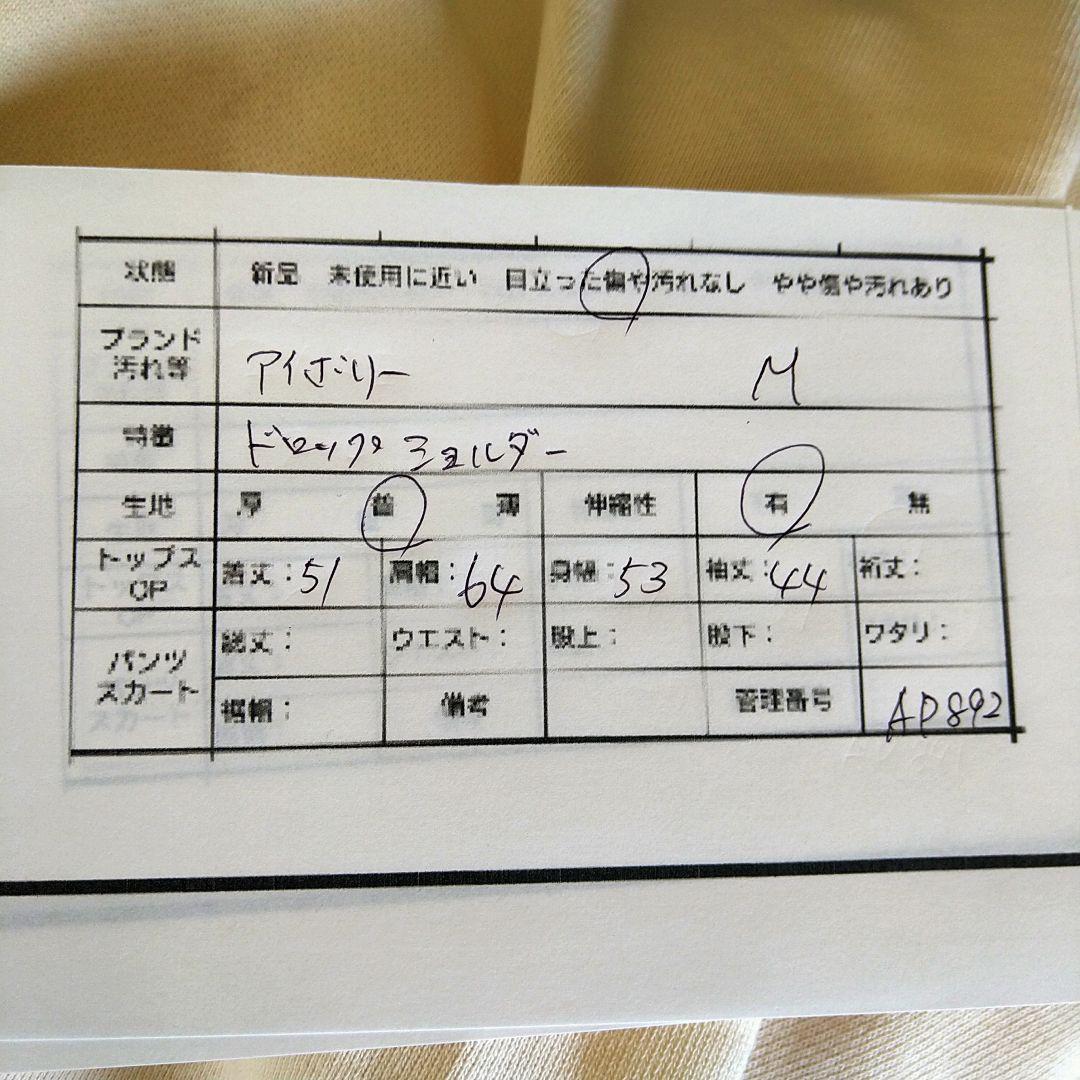 状態 新品 未使用に近い 目立った傷や汚れなし やや傷や汚れあり
ブランド
汚れ等 アイボリー M
特徴 ドロップショルダー
生地 厚 普 薄 伸縮性 有 無
トップス
OP 着丈:51 肩幅:64 身幅:53 袖丈:44 裄丈:
パンツ
スカート 総丈: ウエスト: 股上: 股下: ワタリ:
裾幅: 備考 管理番号 AP892